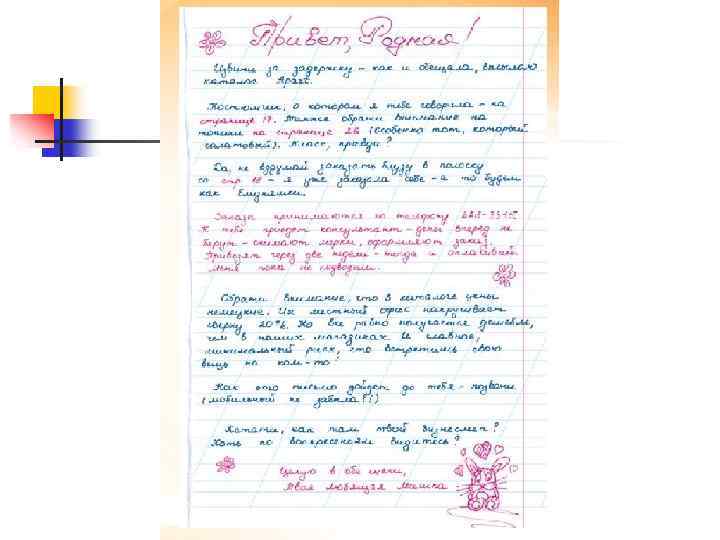 Привет, Родная!
Извини за задержку - как и обещала, высылаю
каталог
Костюмчик, о котором я тебе говорила - на
странице 17. Также обрати внимание на
топики на странице 26 (особенно тот, который
салатовый). Класс, правда?
Да, не вздумай заказать блузу в полоску
со стр. 18 - я уже заказала себе - а то будем
как близняшки.
Заказы принимаются по телефону
К тебе приедет консультант - деньги вперед не
берут - снимают мерки, оформляют заказ.
Привозят через две недели - тогда и оплачивай.
Меня пока не подводили.
Обрати внимание, что в каталоге цены
немецкие. Их местный офис накручивает
сверху 20%. Но все равно получается дешевле,
чем в наших магазинах И главное,
минимальный риск, что встретишь свою
вещь на ком-то!
Как это письмо дойдет до тебя - позвони
(мобильный не забыла?!)
Кстати, как там твой бизнесмен?
Хоть по воскресеньям видитесь?
Целую в обе щеки,
Твоя любящая Машка